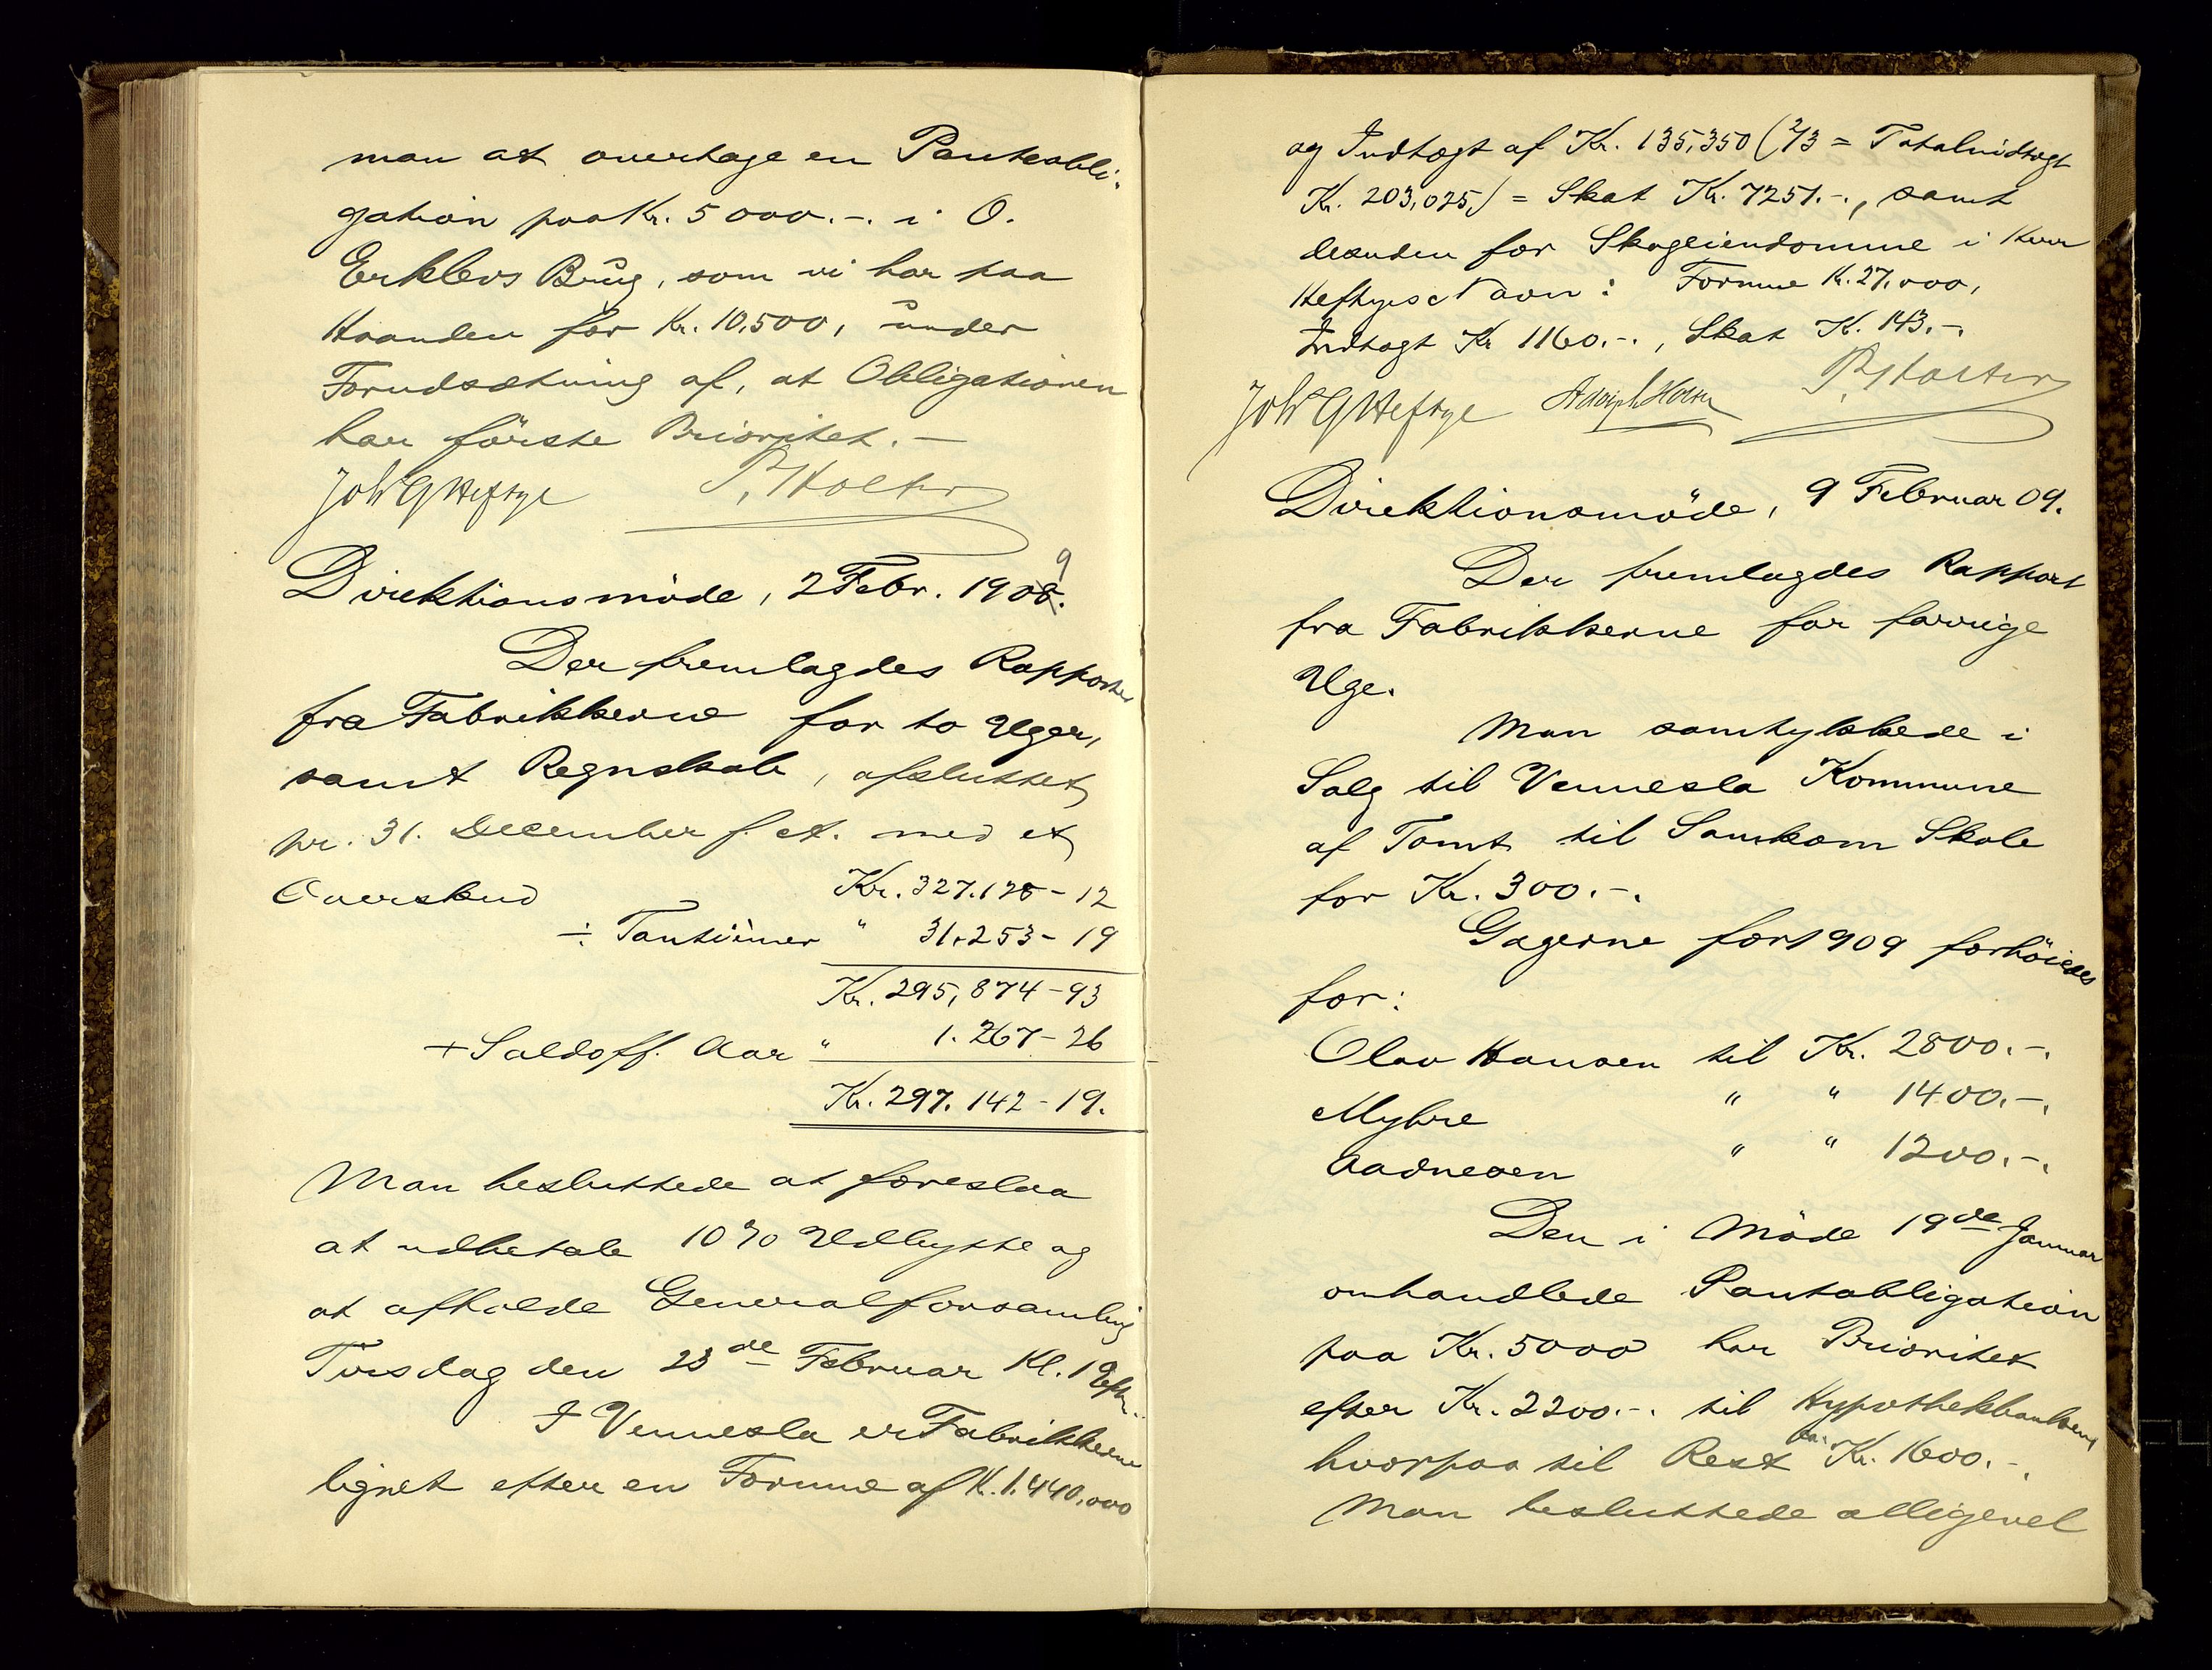 man at overtage en Panteobli-
gation paa Kr. 5000.-. i O.
Erklevs Brug, som vi har paa
Haanden for Kr. 10,500, under
Forudsætning af, at Obligationen
har förste Prioritet. —
Joh G Heftye P. Holter
Direktionsmöde, 2 Febr. 1909.
Der fremlagdes Rapporter
fra Fabrikkerne for to Uger,
samt Regnskab, afsluttet
pr. 31. December f. A. med et
Overskud Kr. 327.128-12
÷ Tantiemer " 31.253-19
Kr. 295,874-93
+ Saldo f f. Aar " 1.267-26
Kr. 297.142-19.
Man besluttede at foreslaa
at udbetale 10% Udbytte og
at afholde Generalforsamling
Tirsdag den 23de Februar Kl. 1 Eftm.
I Vennesla er Fabrikkerne
lignet efter en Formue af K. 1.440.000
og Indtægt af Kr. 135,350 (2/3 = Totalindtægt
Kr. 203,025) = Skat Kr. 7251.-., samt
desuden for Skogeiendomme i Herr
Heftyes Navn: Formue K. 27.000,
Indtægt Kr 1160.-., Skat K. 143.-.
Joh G Heftye Adolph Holter P. Holter
Direktionsmöde, 9 Februar 09.
Der fremlagdes Rapport
fra Fabrikkerne for forrige
Uge.
Man samtykkede i
Salg til Vennesla Kommune
af Tomt til Samkom Skole
for Kr. 300.-.
Gagerne for 1909 forhöiedes
for:
Olav Hansen til Kr. 2800.-.
Myhre " " 1400.-.
Aadnesen " " 1200.-.
Den i Möde 19de Januar
omhandlede Pantobligation
paa Kr. 5000 har Prioritet
efter Kr. 2200.-. til Hypothekbanken,
hvorpaa til Rest ca. Kr. 1600.-.
Man besluttede alligevel